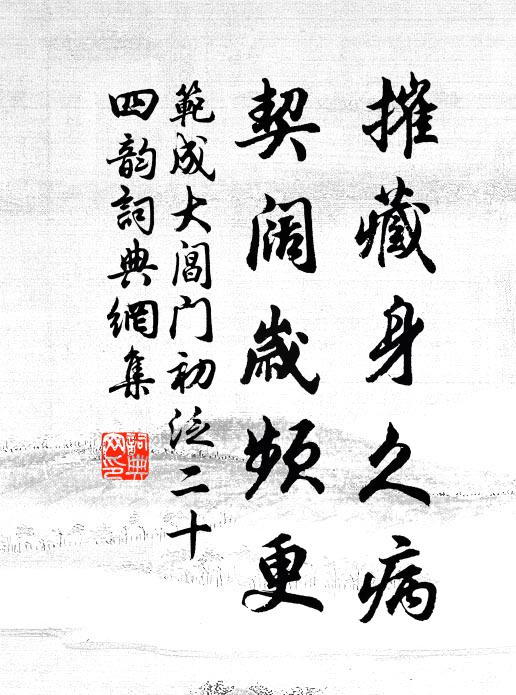 摧藏身久病
契阔歲頻更
範成大閶門初泛二十
四韵詞典網集
詞典網印